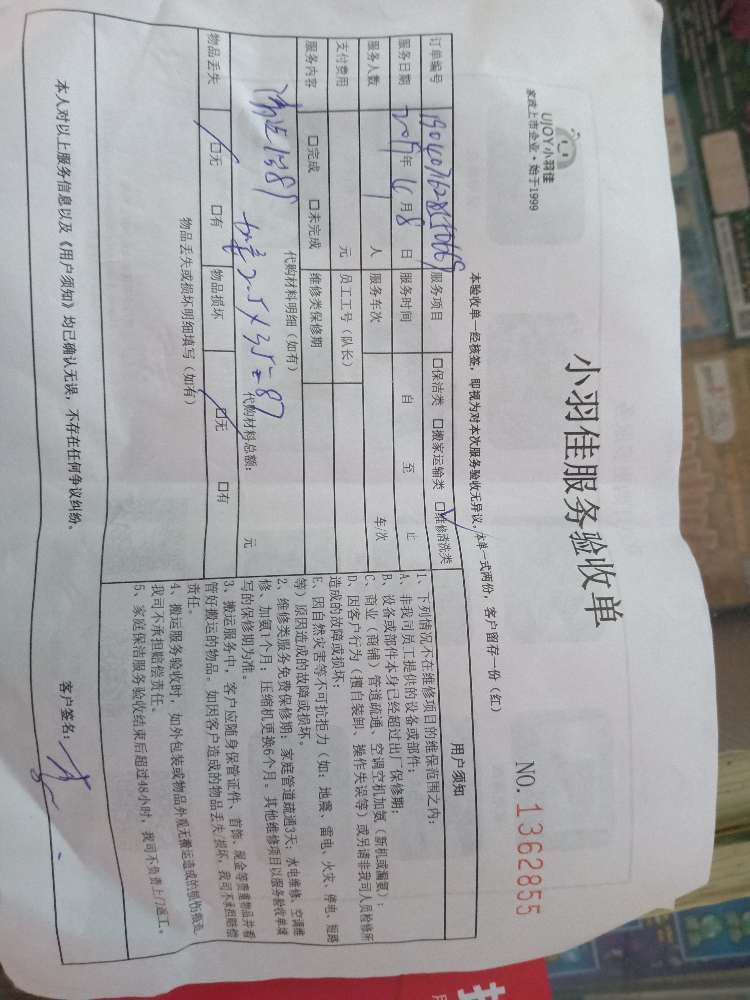 UJOY小羽佳
家政上市企业·始于1999
小羽佳服务验收单
NO. 1362855
本验收单一经核签，即视为对本次服务验收无异议，本单一式两份，客户留存一份（红）
订单编号
服务项目 □保洁类 □搬家运输类 □维修清洗类
服务日期 2019年4月8日 服务时间 自 至 止
服务人数 1 人 服务车次 车/次
支付费用 元 员工工号（队长）
服务内容 □完成 □未完成 维修类保修期
代购材料明细（如有）
2.5×35=87
代购材料总额： 元
物品丢失 □无 □有 物品损坏 □无 □有
物品丢失或损坏明细填写（如有）
用户须知
1、下列情况不在维修项目的维保范围之内：
A、非我司员工提供的设备或部件；
B、设备或部件本身已经超过出厂保修期；
C、商业（商铺）管道疏通、空调空机加氨（新机或漏氨）；
D、因客户行为（擅自装卸、操作失误等）或另请非我司人员检修所
造成的故障或损坏；
E、因自然灾害等不可抗拒力（如：地震、雷电、火灾、停电、短路
等）原因造成的故障或损坏。
2、维修类服务免费保修期：家庭管道疏通3天；水电维修、空调维
修、加氨1个月；压缩机更换6个月。其他维修项目以服务验收单填
写的保修期为准。
3、搬运服务中，客户应随身保管证件、首饰、现金等贵重物品并看
管好搬运的物品。如因客户造成的物品丢失/损坏，我司不承担赔偿
责任。
4、搬运服务验收时，如外包装或物品外观无搬运造成的损伤痕迹，
我司不承担赔偿责任。
5、家庭保洁服务验收结束后超过48小时，我司不负责上门返工。
本人对以上服务信息以及《用户须知》均已确认无误，不存在任何争议纠纷。
客户签名：